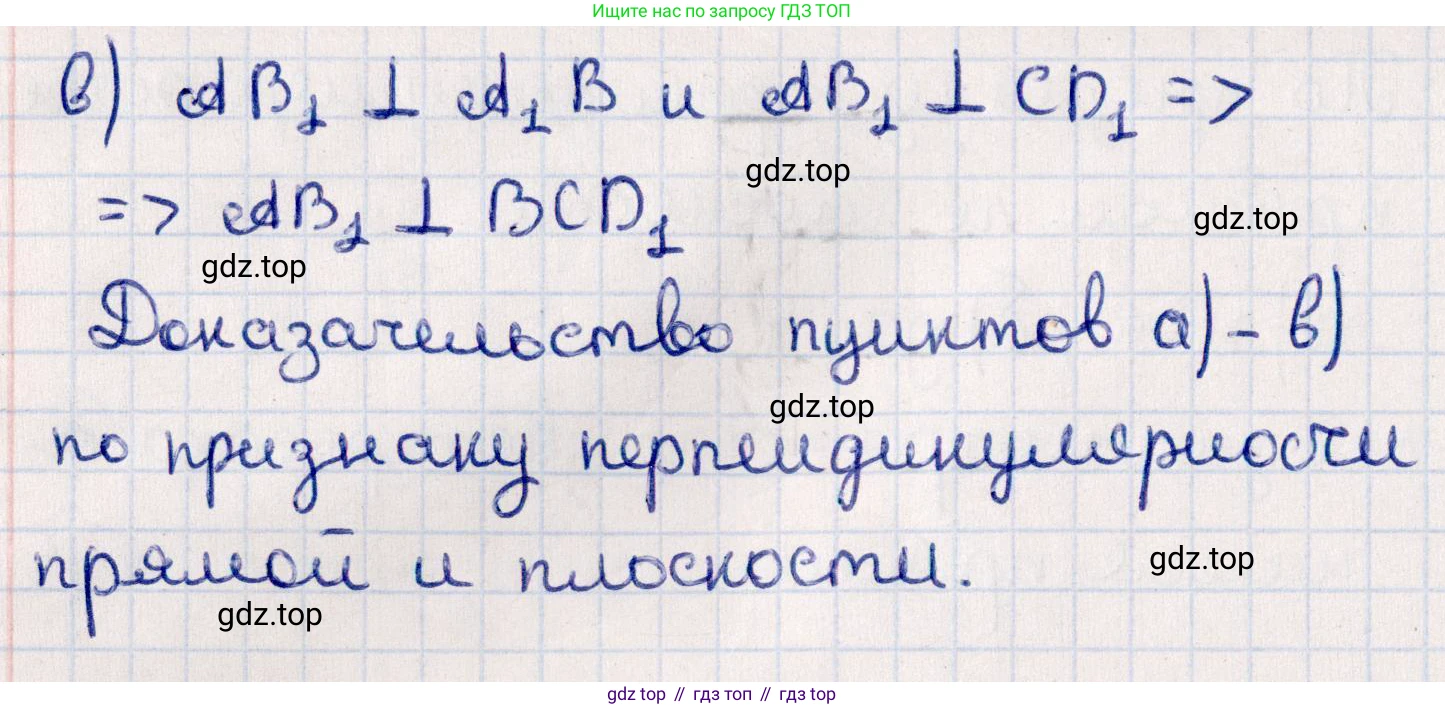 Ищите нас по запросу ГДЗ ТОП
в) AB₁ ⊥ A₁B и AB₁ ⊥ CD₁ =>
gdz.top
=> AB₁ ⊥ BCD₁
gdz.top
gdz.top
Доказательство пунктов а) - в)
gdz.top
по признаку перпендикулярности
прямой и плоскости.
gdz.top
gdz.top
gdz top // гдз топ // гдз top